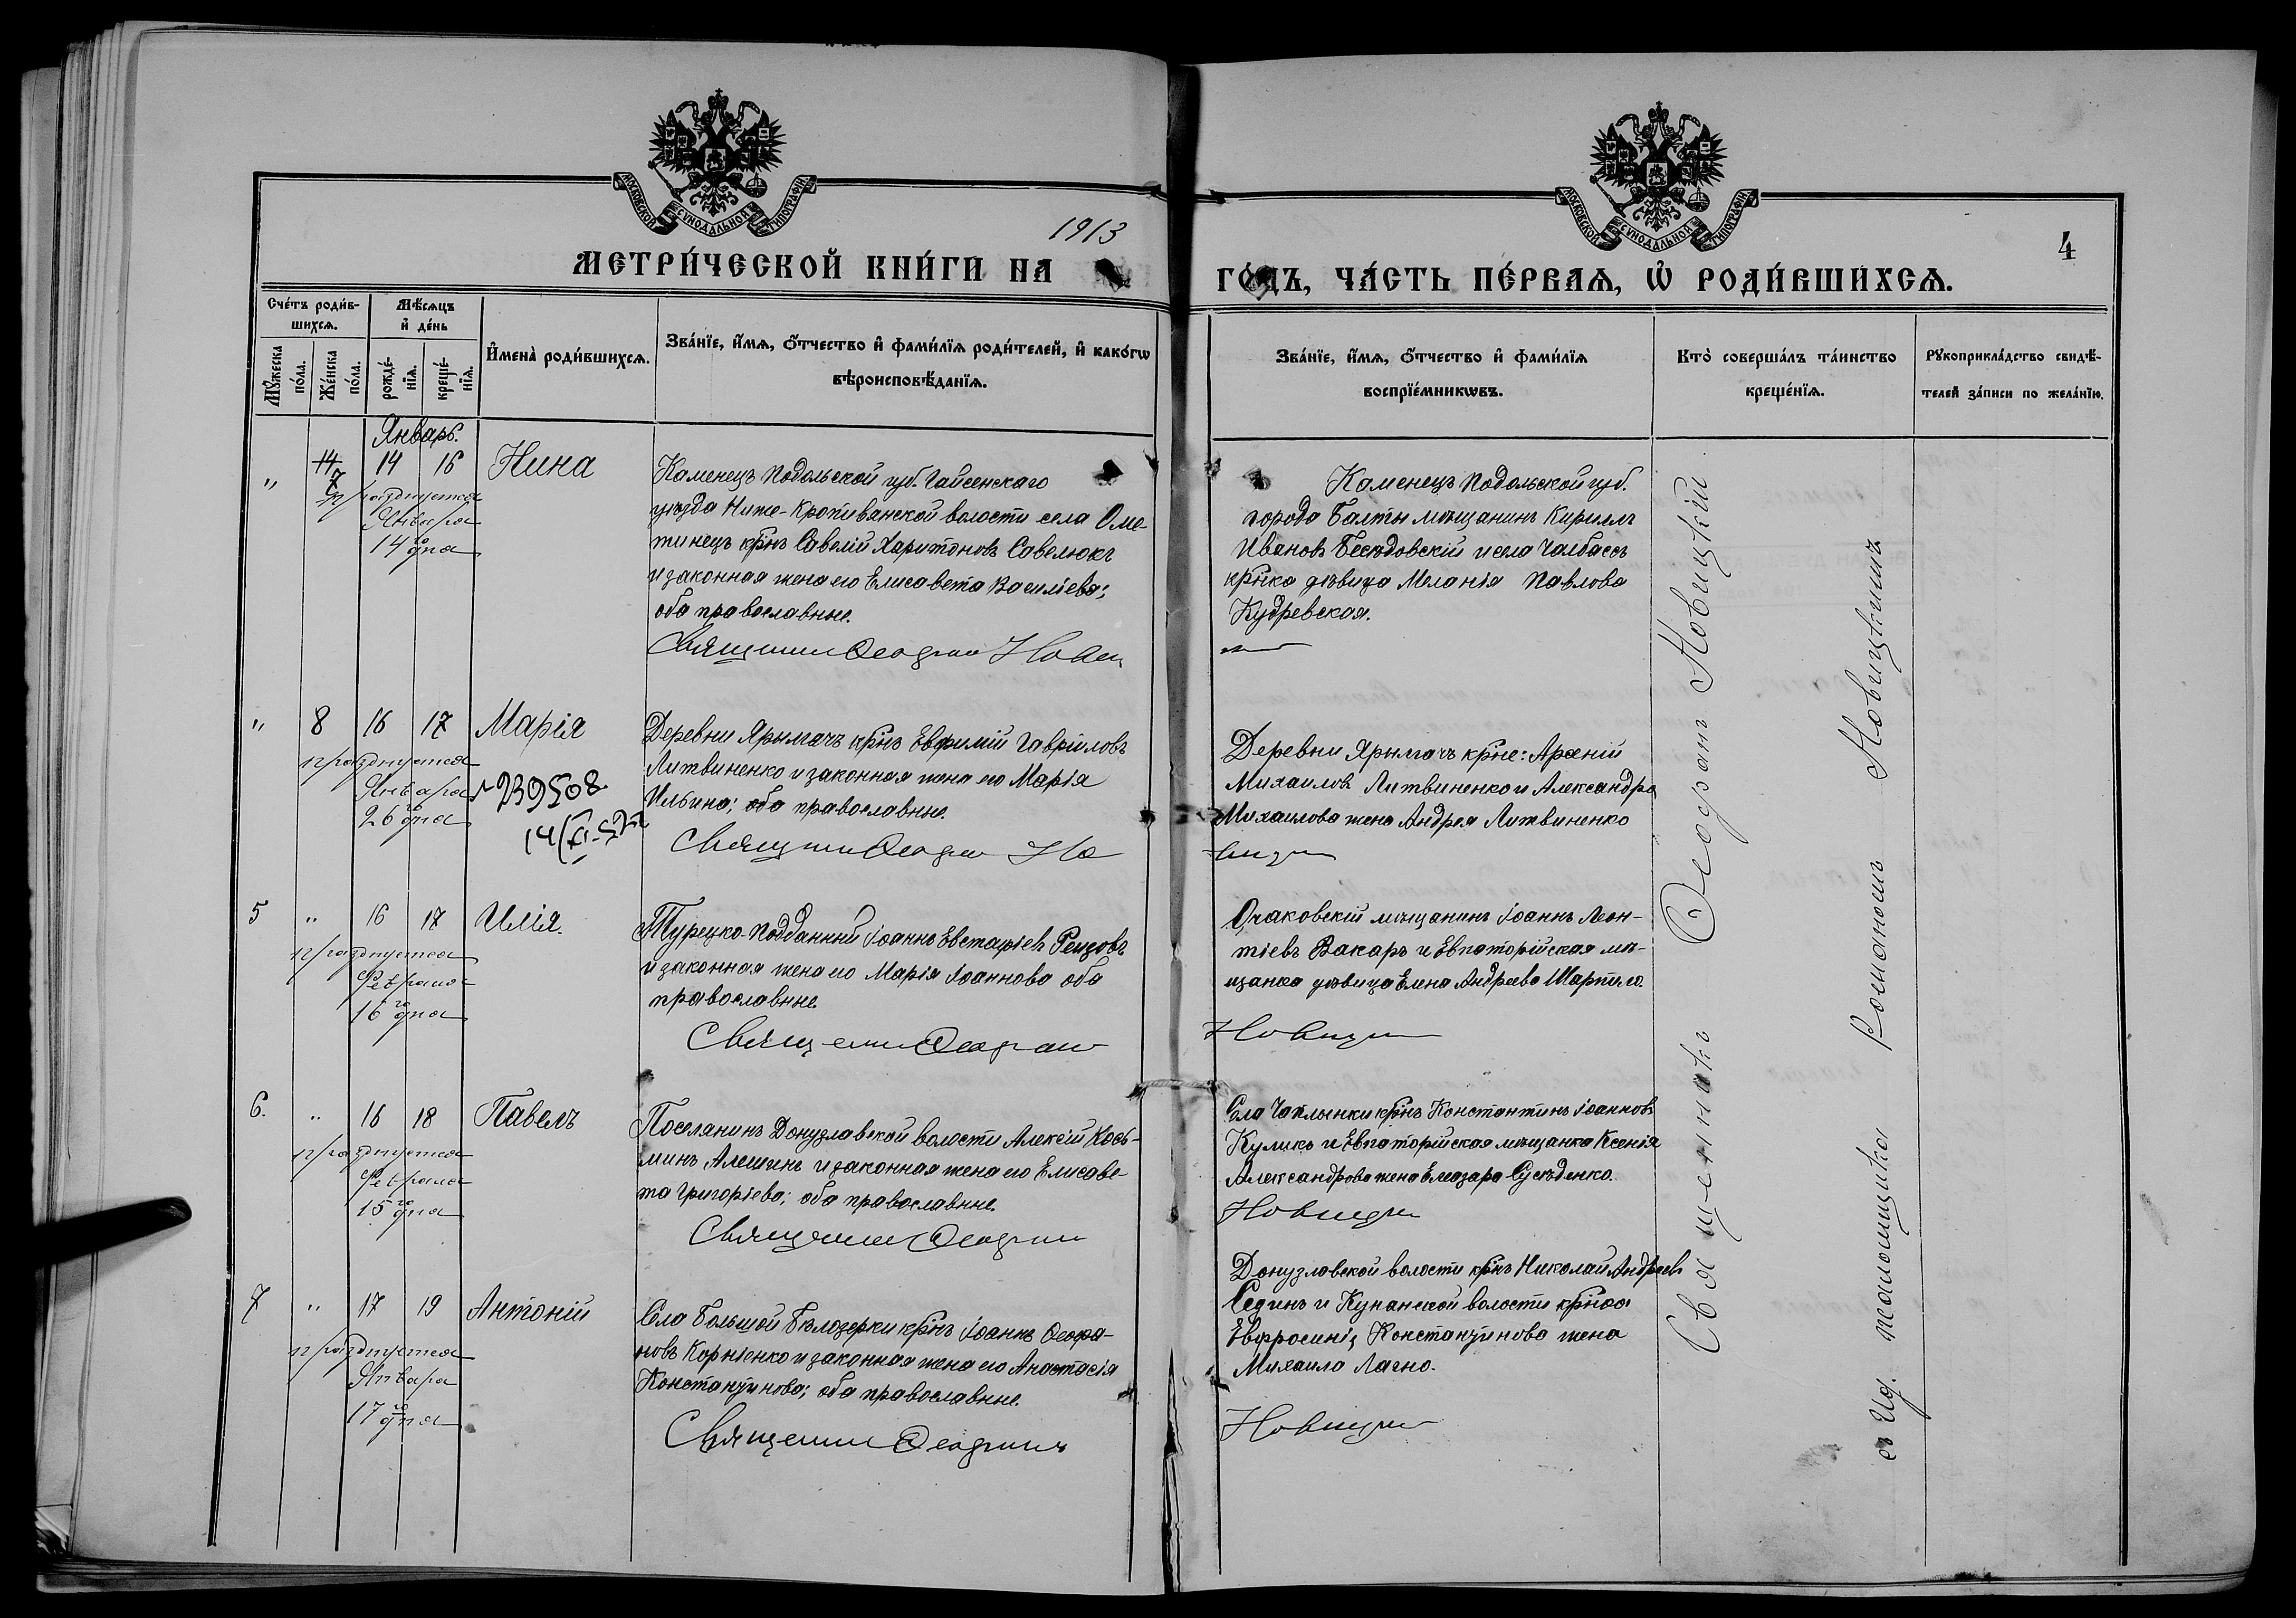 МОСКОВСКОЙ СѴНОДАЛЬНОЙ ТИПОГРАФІИ
МОСКОВСКОЙ СѴНОДАЛЬНОЙ ТИПОГРАФІИ
1913
4
МЕТРИ́ЧЕСКОЙ КНИ́ГИ НА
ГО́ДЪ, ЧА́СТЬ ПЕ́РВАѦ, Ѡ҆ РОДИ́ВШИХСѦ.
Сче́тъ роди́в-
шихсѧ.
Мѣ́сѧцъ
и҆ де́нь
Мꙋ́жеска
по́ла.
Же́нска
по́ла.
рожде́-
нїѧ.
креще́-
нїѧ.
И҆мена̀ роди́вшихсѧ.
Зва́нїе, и҆́мѧ, ѻ҆́тчество и҆ фами́лїѧ роди́телей, и҆ како́гѡ
вѣроисповѣ́данїѧ.
Зва́нїе, и҆́мѧ, ѻ҆́тчество и҆ фами́лїѧ
воспрїе́мникѡвъ.
Кто̀ соверша́лъ та́инство
креще́нїѧ.
Рꙋкоприкла́дство свидѣ́-
телей за́писи по жела́нїю.
Январь.
" 14 7 14 16 Нина
празднуется
Января
14 го дня
Каменецъ Подольской губ. Гайсенскаго
уѣзда Ниже-Кропивянской волости села Оме-
тинецъ крнъ Савелій Харитоновъ Савелюкъ
и законная жена его Елисавета Васильева;
оба православные.
Священник Феофан Новиц
Каменецъ Подольской губ.
города Балты мѣщанинъ Кириллъ
Ивановъ Бесѣдовскій и села Чалбассъ
крнка дѣвица Меланія Павлова
Кудревская.
" 8 16 17 Марія
празднуется
Января
26 го дня
№239508
Деревни Ярылгачъ крнъ Евфимій Гавріиловъ
Литвиненко и законная жена его Марія
Ильина; оба православные.
Священник Феофан Но
Деревни Ярылгачъ крне: Арсеній
Михаиловъ Литвиненко и Александра
Михаилова жена Андрея Литвиненко
вицки
5 " 16 17 Илія.
празднуется
Февраля
16 го дня
Турецко-подданный Іоаннъ Евстафіевъ Реизовъ
и законная жена его Марія Іоаннова оба
православные.
Священник Феофан
Очаковскій мѣщанинъ Іоаннъ Леон-
тіевъ Вакаръ и Евпаторійская мѣ-
щанка дѣвица Елена Андреева Шартило.
Новицки
6. " 16 18 Павелъ
празднуется
Февраля
15 го дня
Поселянинъ Донузлавской волости Алексій Козь-
минъ Алешинъ и законная жена его Елисаве-
та Григоріева; оба православные.
Священник Феофан
Села Чаплынки крнъ Константинъ Іоанновъ
Куликъ и Евпаторійская мѣщанка Ксенія
Александрова жена Елеазара Сусѣденко.
Новицки
7 " 17 19 Антоній
празднуется
Января
17 го дня
Села Большой Бѣлозерки крнъ Іоаннъ Феофа-
новъ Корніенко и законная жена его Анастасія
Константинова; оба православные.
Священник Феофан
Донузлавской волости крнъ Николай Андреевъ
Сединъ и Кунанской волости крнка
Евфросинія Константинова жена
Михаила Лагно.
Новицки
Священникъ Феофанъ Новицкій
съ Ид. псаломщика Романомъ Новицкимъ